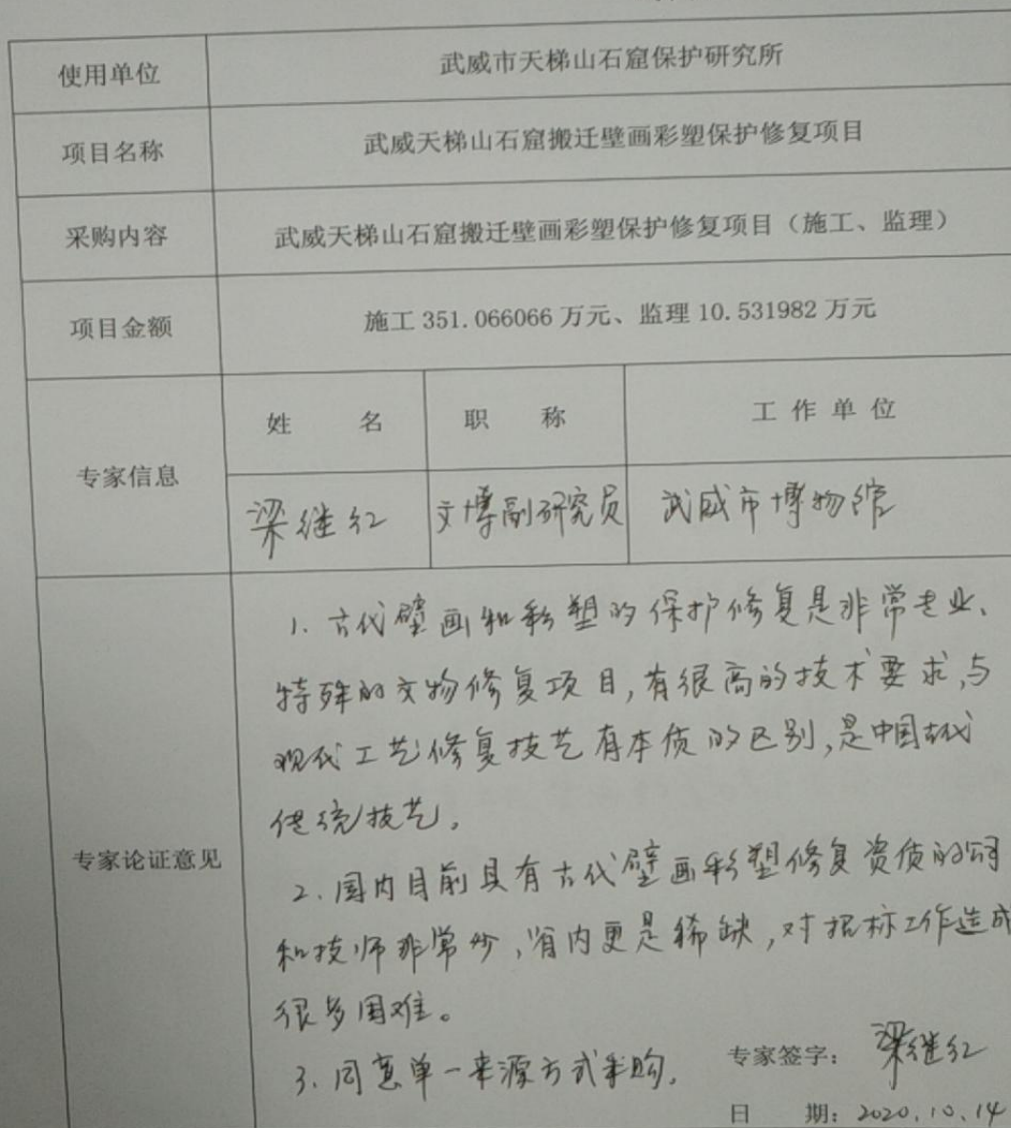 使用单位 武威市天梯山石窟保护研究所
项目名称 武威天梯山石窟搬迁壁画彩塑保护修复项目
采购内容 武威天梯山石窟搬迁壁画彩塑保护修复项目（施工、监理）
项目金额 施工 351.066066 万元、监理 10.531982 万元
专家信息
姓 名 职 称 工作单位
梁继红 文博副研究员 武威市博物馆
专家论证意见
1. 古代壁画和彩塑的保护修复是非常专业、
特殊的文物修复项目,有很高的技术要求,与
现代工艺修复技艺有本质的区别,是中国古代
传统技艺。
2. 国内目前具有古代壁画彩塑修复资质的公司
和技师非常少,省内更是稀缺,对招标工作造成
很多困难。
3. 同意单一来源方式采购。
专家签字： 梁继红
日 期： 2020.10.14